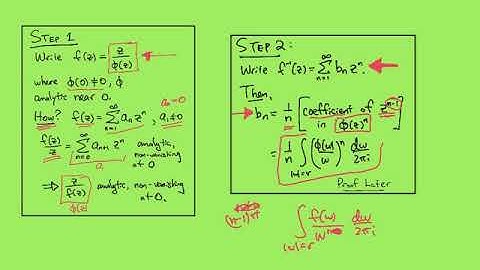 STEP 1
Write f(z) = z/φ(z)
where φ(0)≠0, φ
analytic near 0.
a₀=0
How? f(z) = ∑_{n=1}^{∞} aₙ zⁿ, a₁≠0
f(z)/z = ∑_{n=0}^{∞} aₙ₊₁ zⁿ analytic, non-vanishing at 0
a₁
⇒ z/f(z) analytic, non-vanishing at 0.
φ(z)
STEP 2:
Write f⁻¹(z) = ∑_{n=1}^{∞} bₙ zⁿ.
Then,
bₙ = 1/n [coefficient of zⁿ⁻¹ in φ(z)ⁿ]
= 1/n ∫_{|w|=r} (φ(w)/w)ⁿ dw/2πi
Proof Later
(n-1)+1
∫_{|w|=r} f(w)/wⁿ dw/2πi